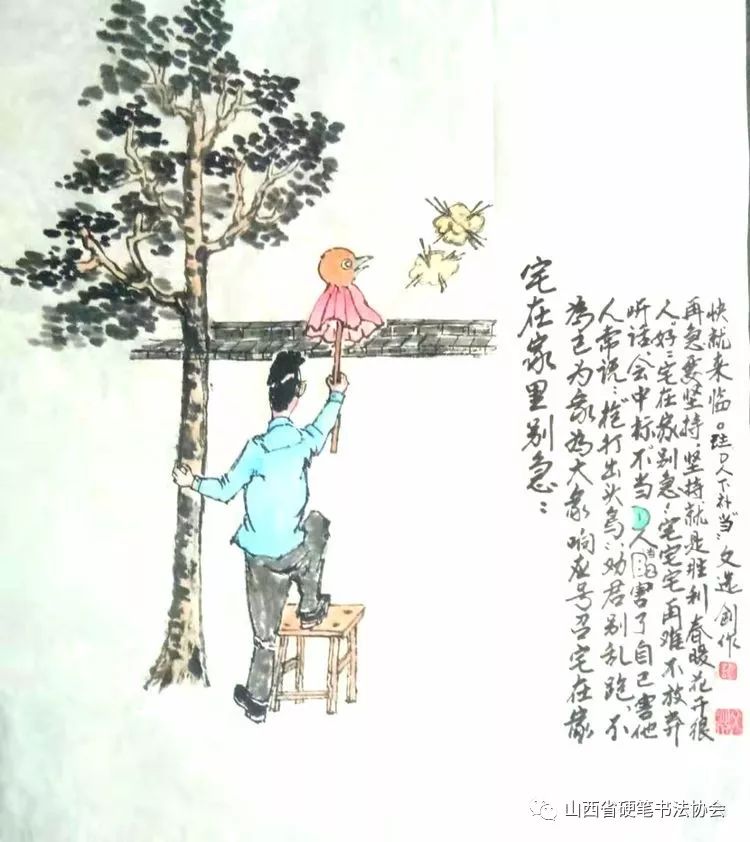 宅在家里别急：
为己为家为大家响应号召宅在家
人常说："枪打出头鸟"，劝君别乱跑，不
听话，会中标，不当人害了自己害他
人。好：宅在家别急！宅宅宅再难不放弃
再急要坚持，坚持就是胜利春暖花千很
快就来临。注①人下补"当"。文选创作
山西省硬笔书法协会